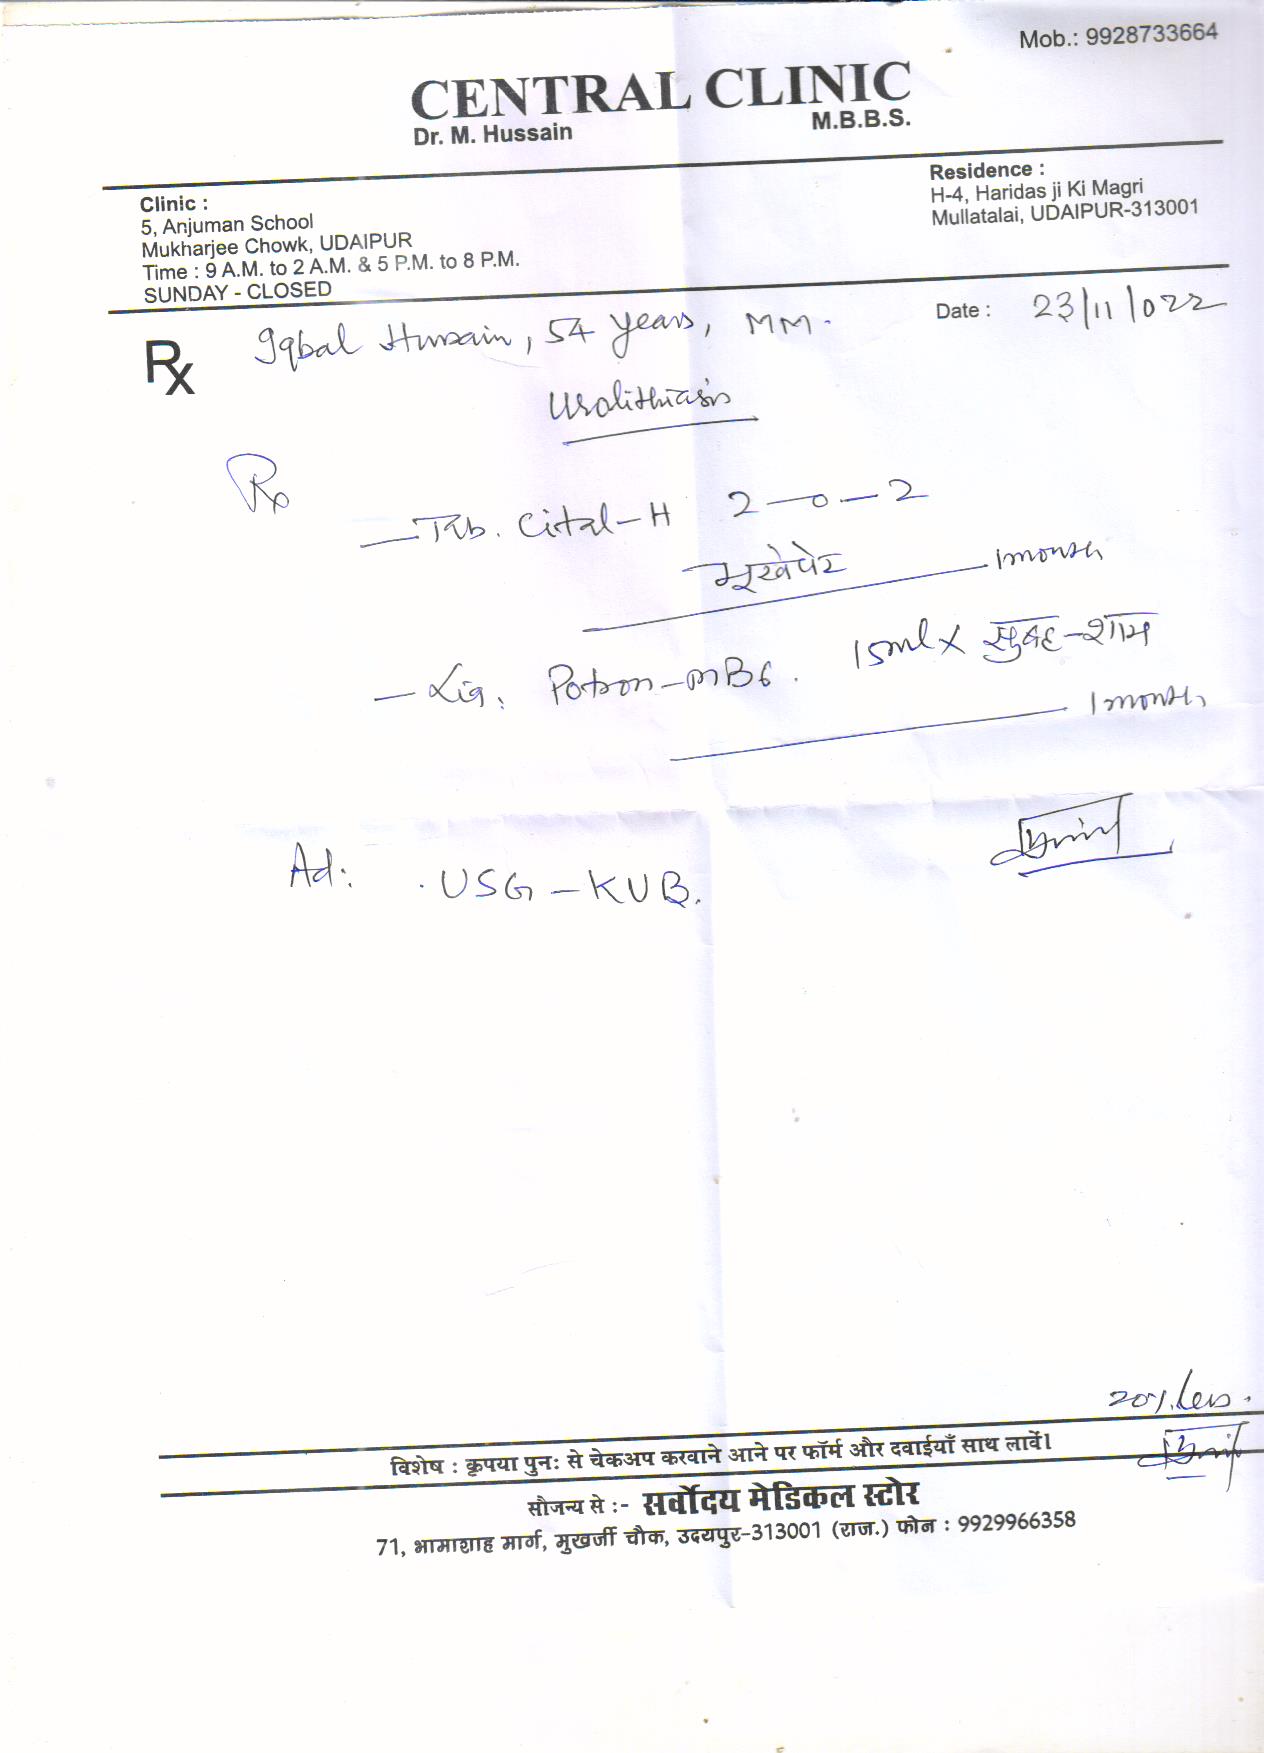 Mob.: 9928733664
CENTRAL CLINIC
Dr. M. Hussain M.B.B.S.
Clinic :
5, Anjuman School
Mukharjee Chowk, UDAIPUR
Time : 9 A.M. to 2 A.M. & 5 P.M. to 8 P.M.
SUNDAY - CLOSED
Residence :
H-4, Haridas ji Ki Magri
Mullatalai, UDAIPUR-313001
Date : 23/11/022
Rx Iqbal Hussain, 54 years, MM.
Urolithiasis
Rx
— Tab. Cital-H 2—0—2
भूखेपेट — 1month
— Liq. Potron-MB6. 15ml x सुबह-शाम
— 1month
Ad: . USG-KUB.
20% Less.
विशेष : कृपया पुनः से चेकअप करवाने आने पर फॉर्म और दवाईयाँ साथ लावें।
सौजन्य से :- सर्वोदय मेडिकल स्टोर
71, भामाशाह मार्ग, मुखर्जी चौक, उदयपुर-313001 (राज.) फोन : 9929966358